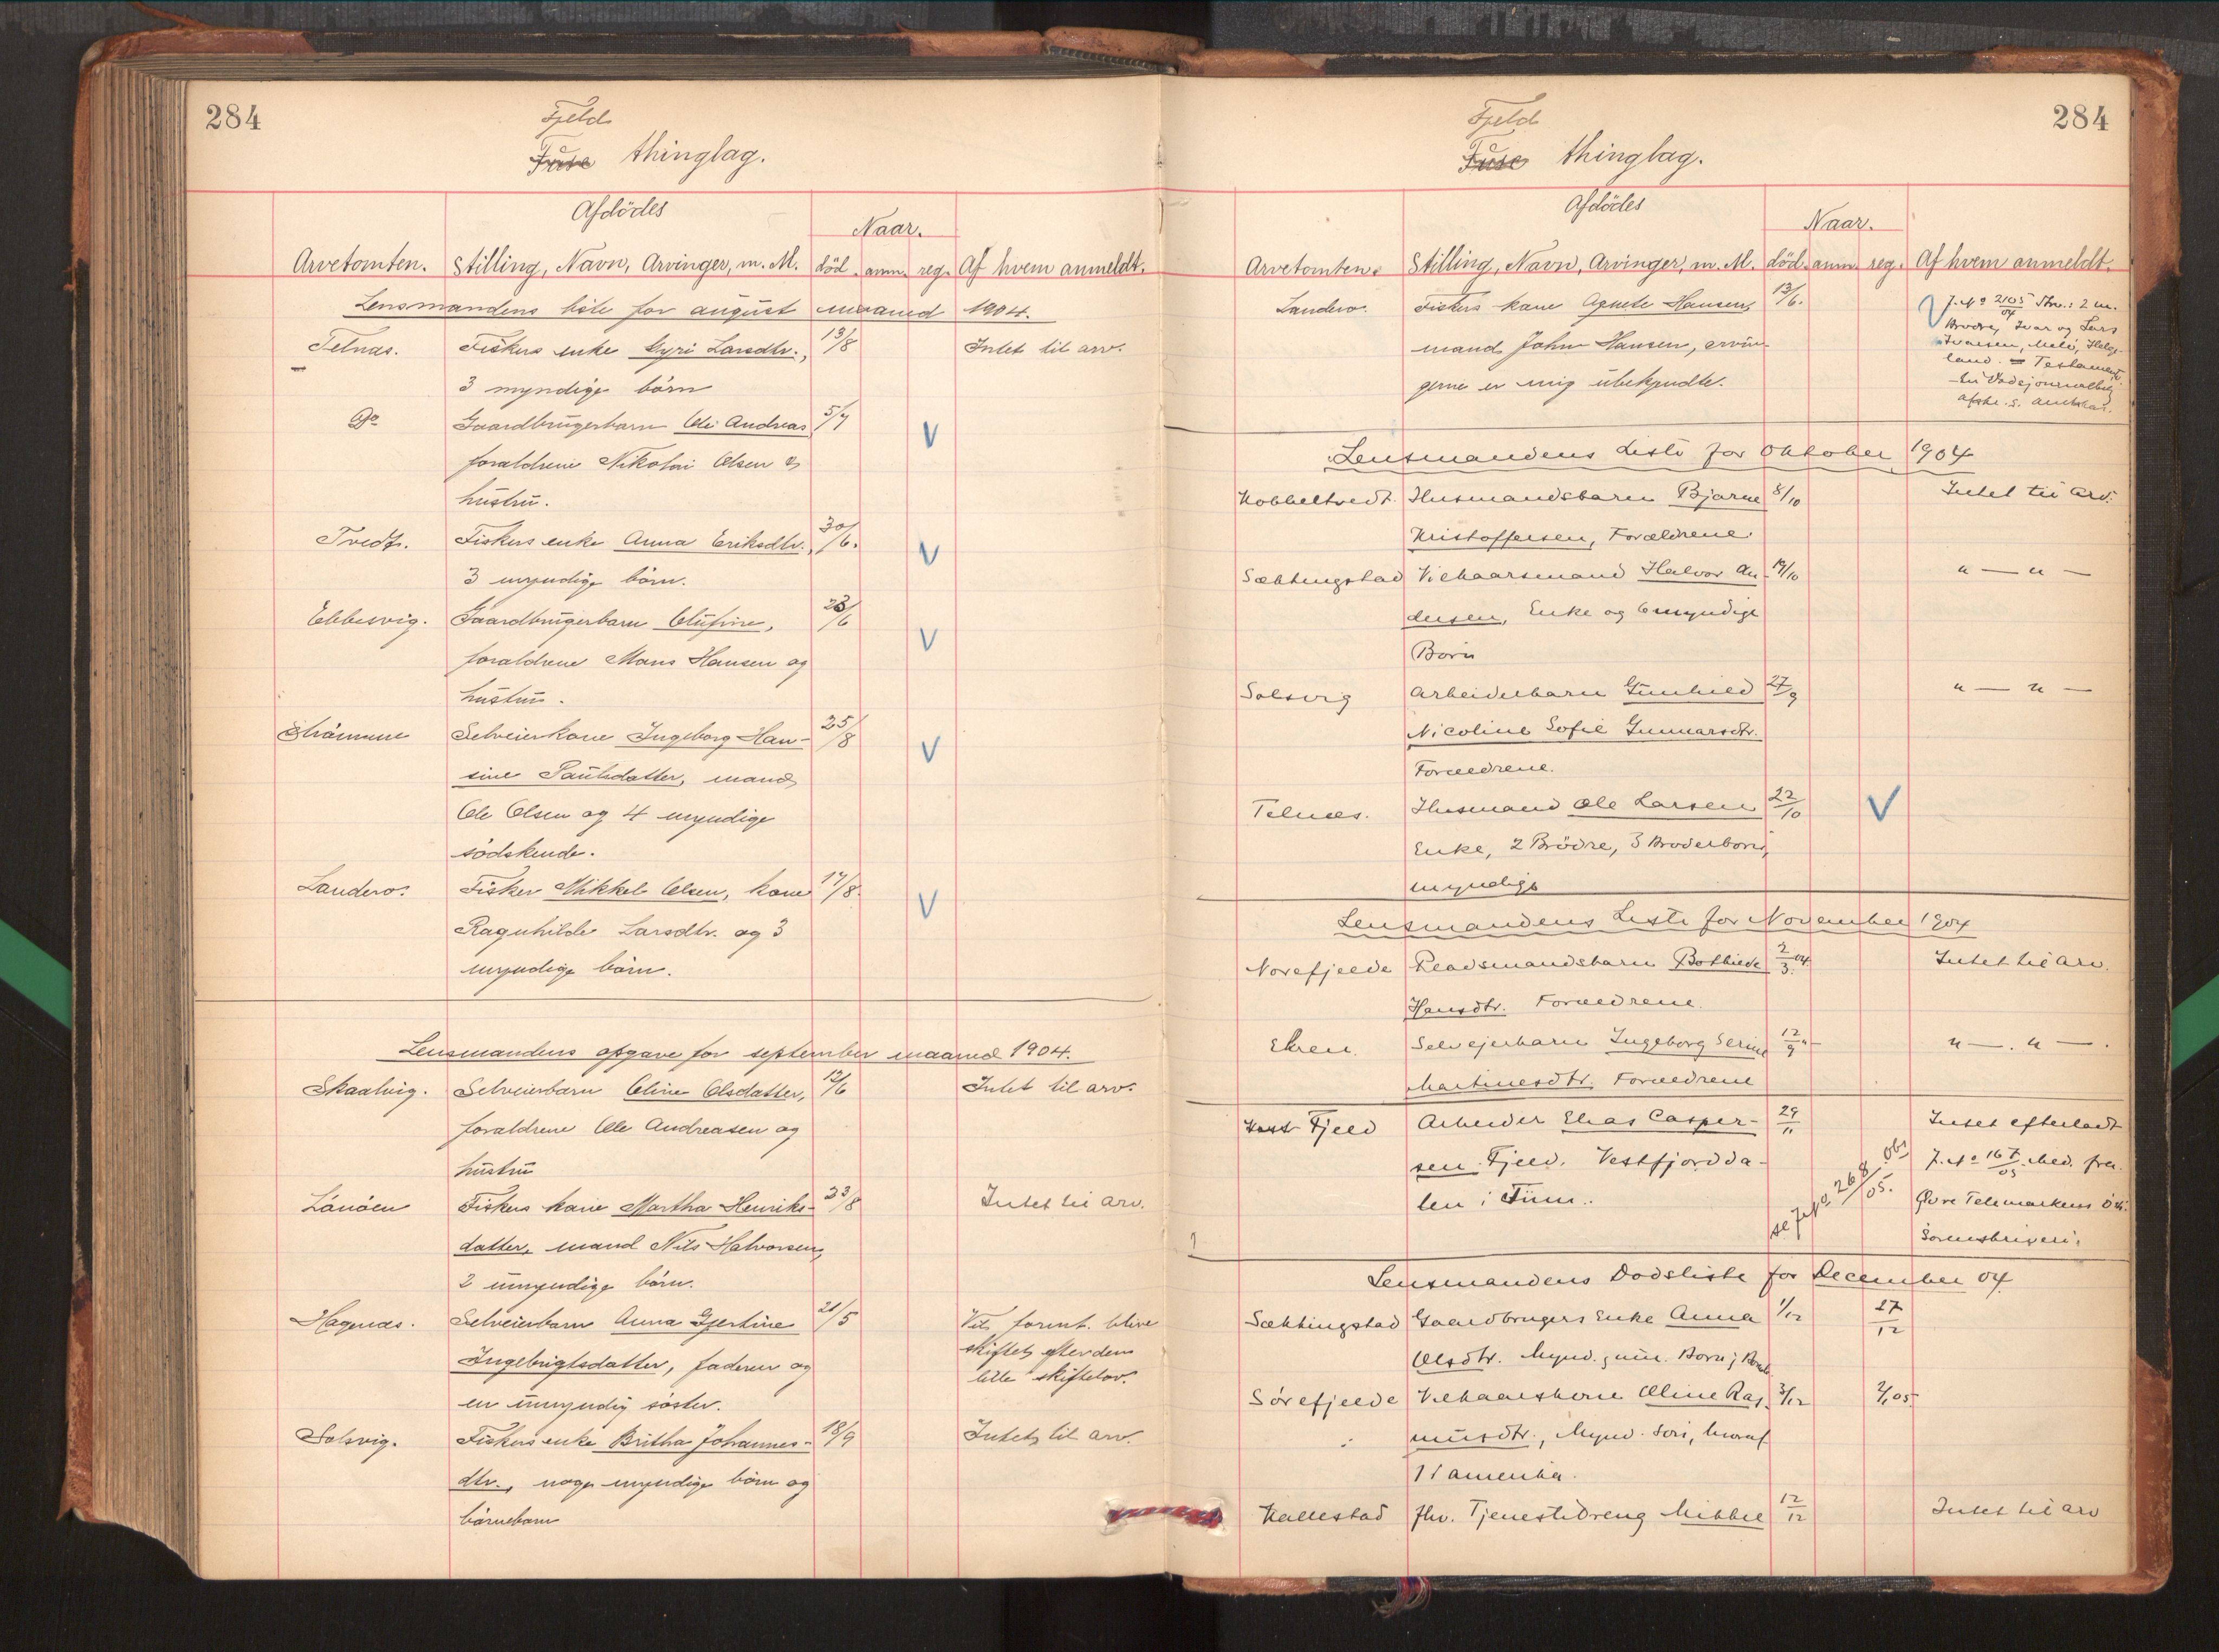 284
Fjeld
Fuse thinglag.
Afdödes
Naar.
Arvetomten. Stilling, Navn, Arvinger, m. M. död. anm. reg. Af hvem anmeldt.
Lensmandens liste for august maaned 1904.
Telnæs. Fiskers enke Gyri Larsdtr., 13/8 Intet til arv.
3 myndige börn
Do Gaardbrugerbarn Ole Andreas 5/7 V
forældrene Nikolai Olsen &
hustru.
Tvedt. Fiskers enke Anna Eriksdtr., 30/6. V
3 myndige börn.
Ebbesvig. Gaardbrugerbarn Olufine, 23/6 V
forældrene Mons Hansen og
hustru.
Strömme Selveierkone Ingeborg Han- 25/8 V
sine Paulsdatter, mand
Ole Olsen og 4 myndige
södskende.
Landero. Fisker Mikkel Olsen, kone 17/8. V
Ragnhilde Larsdtr. og 3
myndige börn.
Lensmandens opgave for september maaned 1904.
Skaalvig. Selveierbarn Oline Olsdatter, 12/6 Intet til arv.
forældrene Ole Andreasen og
hustru
Lönöen Fiskers kone Martha Henriks- 23/8 Intet til arv.
datter, mand Nils Halvorsen,
2 umyndige börn.
Hagenæs. Selveierbarn Anna Gjertine 21/5 Vil forint. blive
Ingebrigtsdatter, faderen og skiftet efter den
en umyndig söster. lille skiftelov.
Solsvig. Fiskers enke Britha Johannes- 18/9 Intet til arv.
dtr., noge myndige börn og
börnebarn
284
Fjeld
Fuse thinglag.
Afdödes
Naar.
Arvetomten. Stilling, Navn, Arvinger, m. M. död. anm. reg. Af hvem anmeldt.
Landero. Fiskers kone Agnete Hansen, 13/6. V J. No 2105/04 2 m.
mand John Hansen, arvin- Brödre, Ivar og Lars
gerne er mig ubekjendte. Ivarsen, Melö, Helge-
land. = Testament
Lensmandens Liste for Oktober 1904
Kobbeltvedt. Husmandsbarn Bjarne 8/10 Intet til arv.
Kristoffersen, Forældrene.
Sæktingstad Vilkaarsmand Halvor An- 19/10 " — " —
dersen, Enke og 6 myndige
Börn
Solsvig Arbeiderbarn Gunhild 27/9 " — " —
Nicoline Sofie Gunnarsdtr.
Forældrene.
Telnæs. Husmand Ole Larsen 22/10 V
Enke, 2 Brödre, 3 Broderbörn,
myndige
Lensmandens Liste for November 1904
Norefjelde Pladsmandsbarn Bothilde 2/3. 04. Intet til arv.
Hansdtr. Forældrene.
Ekren. Selvejerbarn Ingeborg Serine 12/9 " — " — .
Martinesdtr. Forældrene
Fjeld Arbeider Elias Casper- 29/11 Intet efterladt
sen Fjeld. Vestfjordda- J. No 167/05. Med. fra
len i Tinn. se J. No 268/05. obs Övre Telemarkens
Sorenskriveri.
Lensmandens Dodsliste for December 04.
Sæktingstad Gaardbrugers Enke Anna 1/12 27/12
Olsdtr. Mynd. Börn;
Sörefjelde Vilkaarskone Oline Ras 3/12 2/1 05.
musdtr., Mynd.
1 i Amerika.
Kallestad fhv. Tjenestedreng Mikkel 12/12 Intet til arv